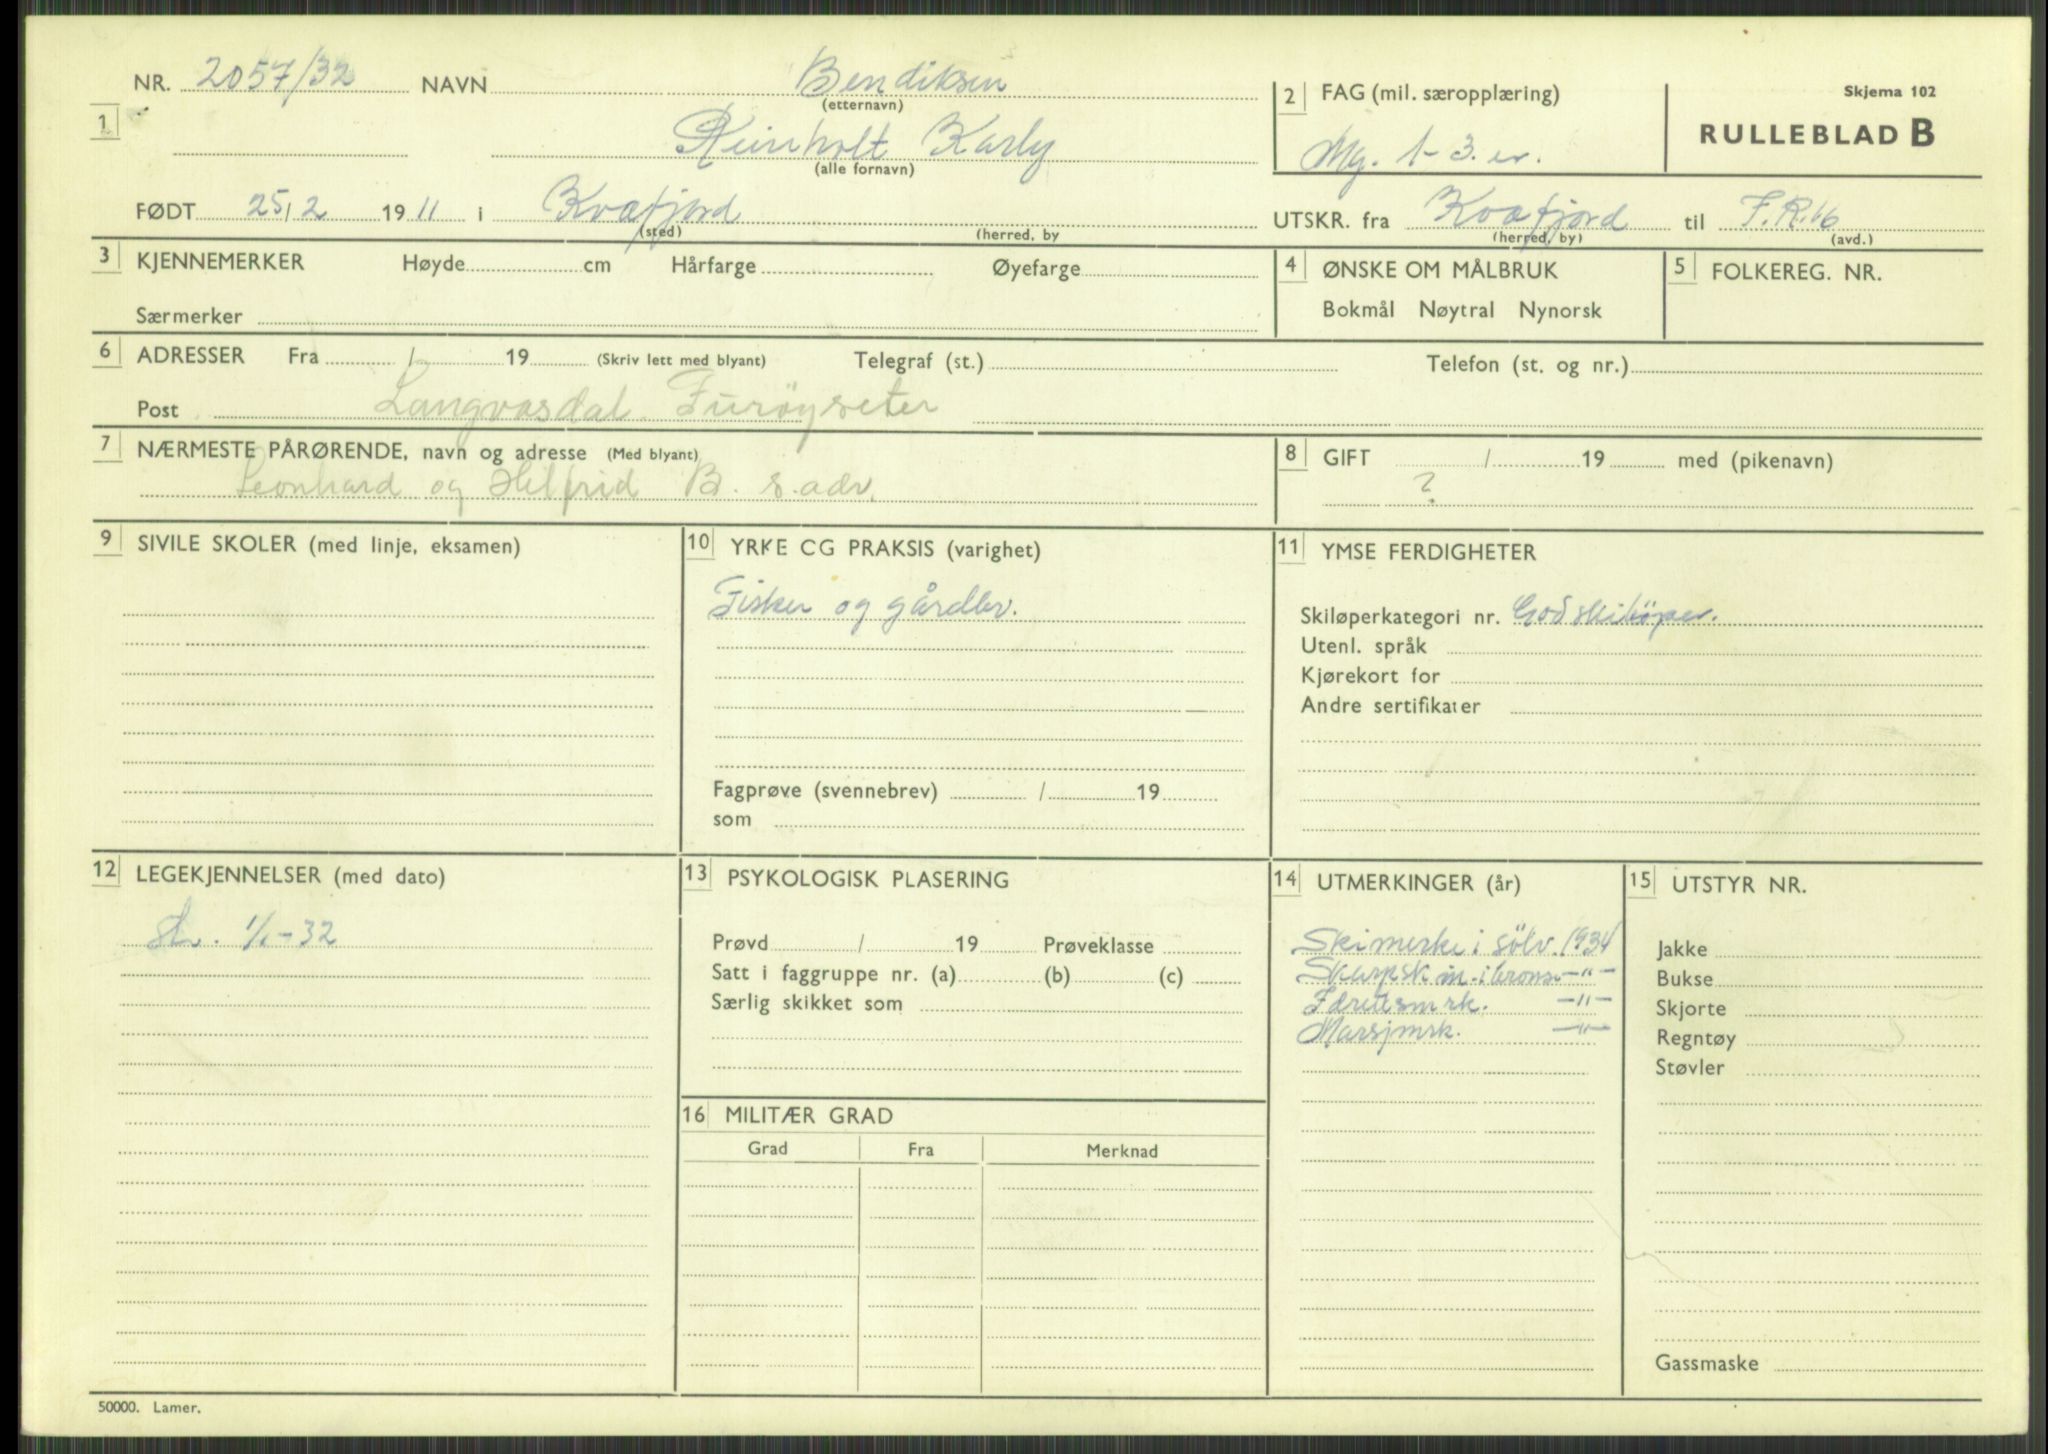 NR. 2057/32 NAVN Bendiksen
(etternavn)
2 FAG (mil. særopplæring)
Skjema 102
1
Reinholt Karly
(alle fornavn)
Mg. 1-3. er.
RULLEBLAD B
FØDT 25/2 1911 i Kvæfjord
(sted) (herred, by
UTSKR. fra Kvæfjord til I.R.16
(herred, by) (avd.)
3 KJENNEMERKER Høyde cm Hårfarge Øyefarge
Særmerker
4 ØNSKE OM MÅLBRUK
Bokmål Nøytral Nynorsk
5 FOLKEREG. NR.
6 ADRESSER Fra / 19 (Skriv lett med blyant) Telegraf (st.) Telefon (st. og nr.)
Post Langvasdal Furøyseter
7 NÆRMESTE PÅRØRENDE, navn og adresse (Med blyant)
Leonhard og Hilfrid B. s.adr.
8 GIFT / 19 med (pikenavn)
?
9 SIVILE SKOLER (med linje, eksamen)
10 YRKE CG PRAKSIS (varighet)
Fisker og gårdbr.
Fagprøve (svennebrev) / 19
som
11 YMSE FERDIGHETER
Skiløperkategori nr. God skiløper.
Utenl. språk
Kjørekort for
Andre sertifikater
12 LEGEKJENNELSER (med dato)
13 PSYKOLOGISK PLASERING
Prøvd / 19 Prøveklasse
Satt i faggruppe nr. (a) (b) (c)
Særlig skikket som
14 UTMERKINGER (år)
Skimerke i sölv. 1934
Skarpsk m. i bronse -"-
Idrettsmrk. -"-
Marsjmrk. -"-
15 UTSTYR NR.
Jakke
Bukse
Skjorte
Regntøy
Støvler
Gassmaske
16 MILITÆR GRAD
Grad Fra Merknad
50000. Lamer.